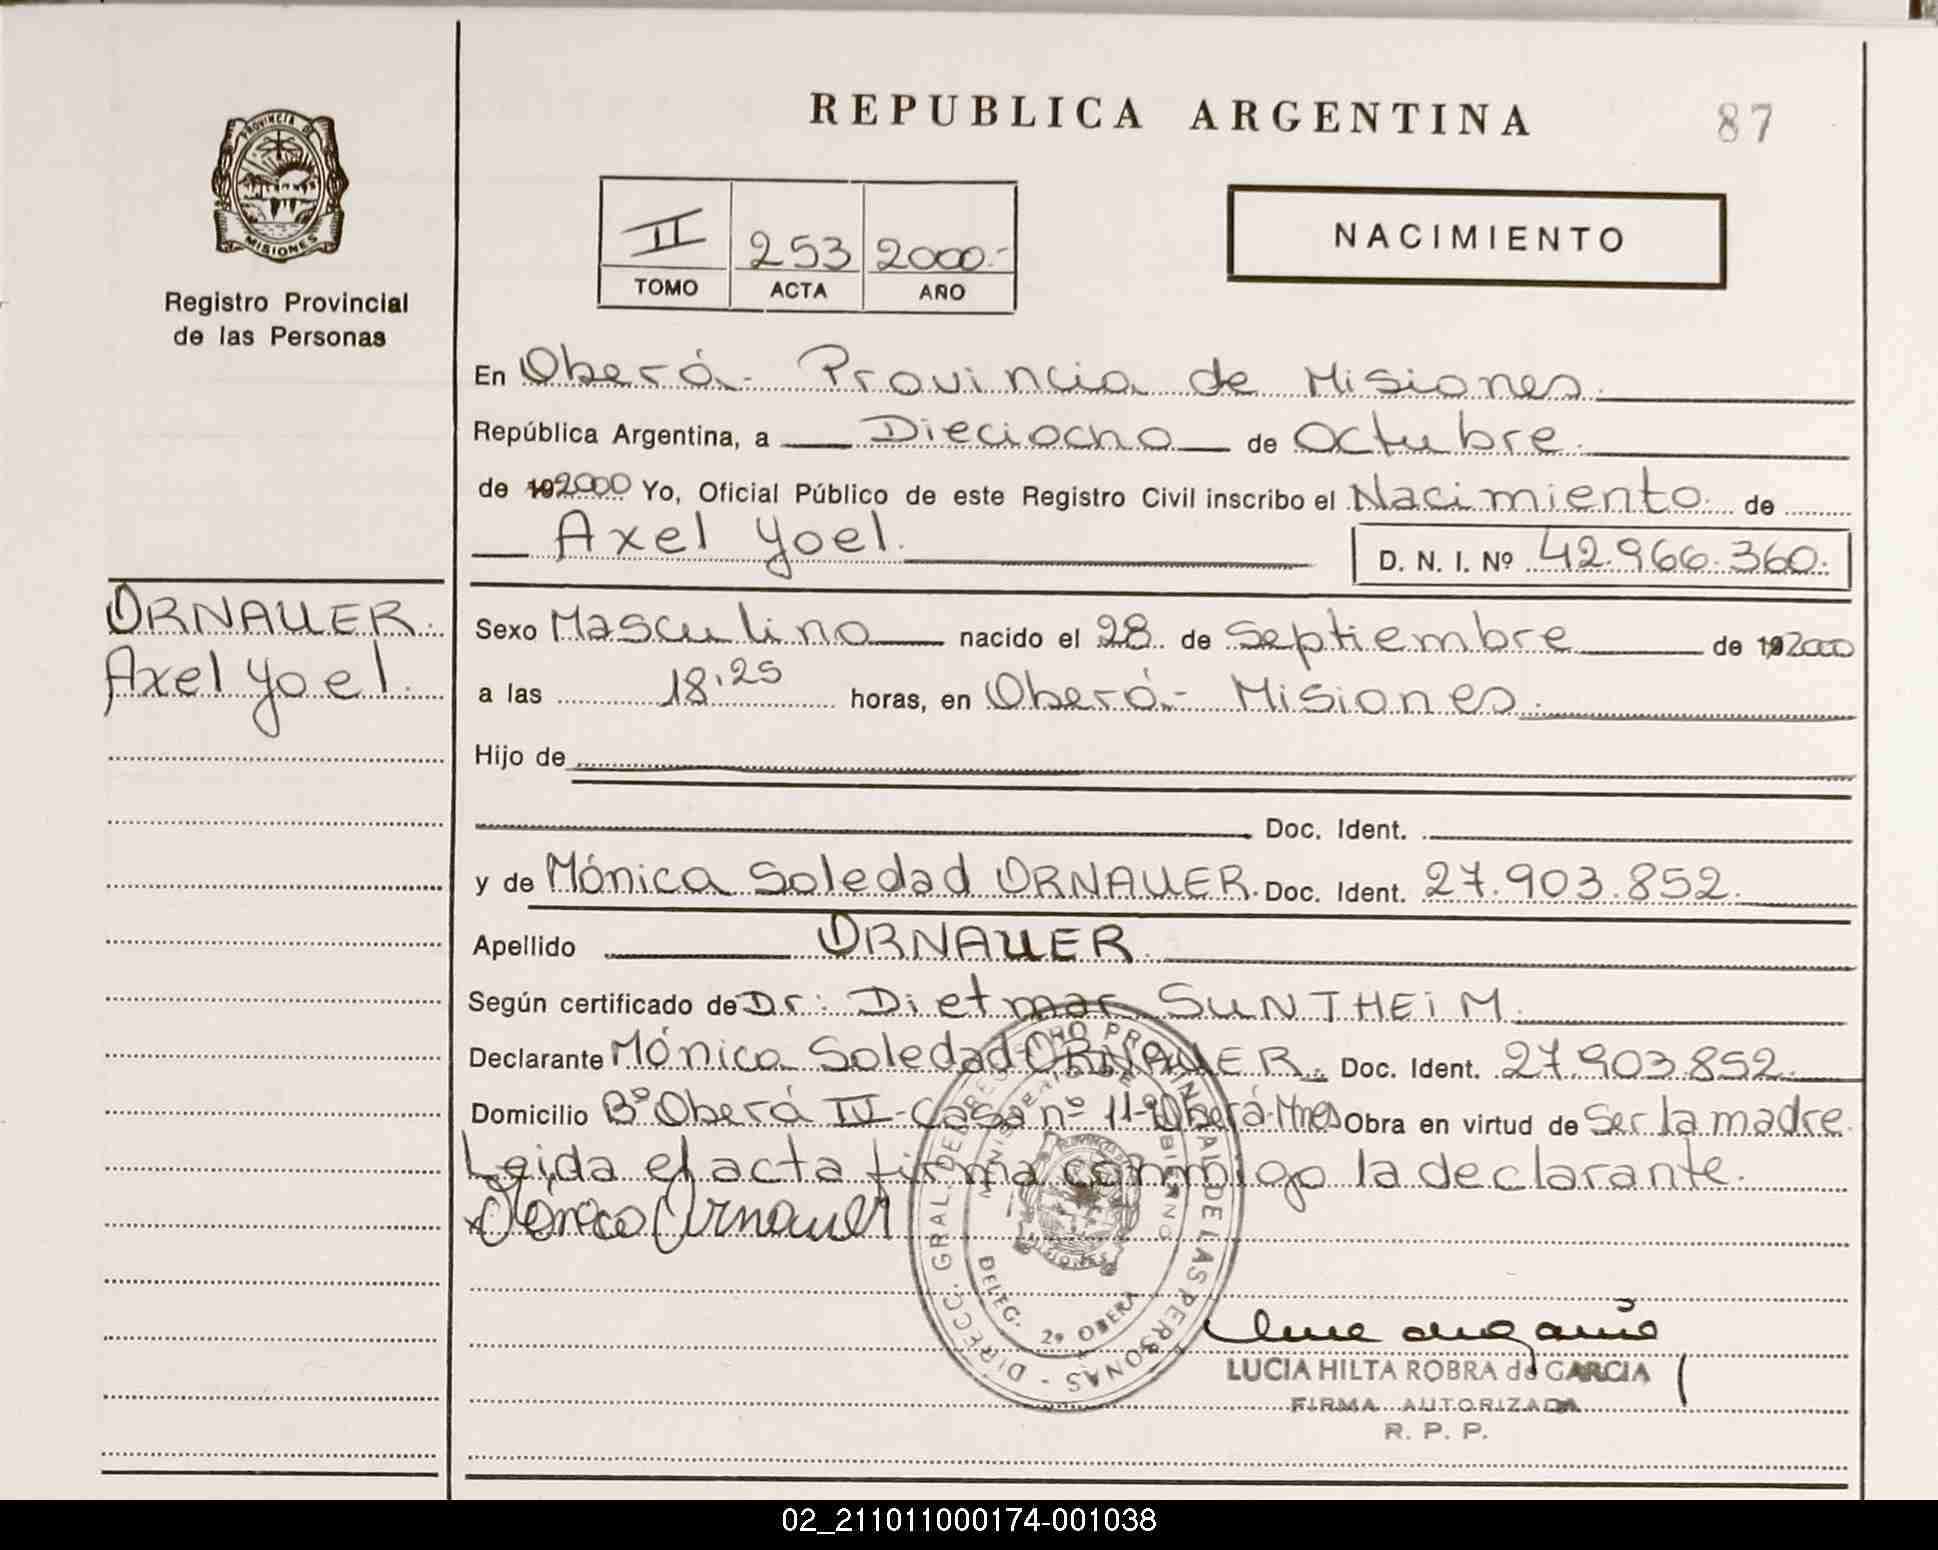 REPUBLICA ARGENTINA
87
PROVINCIA DE
MISIONES
Registro Provincial
de las Personas
II 253 2000.-
TOMO ACTA AÑO
NACIMIENTO
En Oberá- Provincia de Misiones.
República Argentina, a Dieciocho de Octubre.
de 192000 Yo, Oficial Público de este Registro Civil inscribo el Nacimiento de
Axel Yoel.
D. N. I. Nº 42.966.360.
ORNAUER.
Axel Yoel.
Sexo Masculino nacido el 28 de Septiembre de 192000
a las 18,25 horas, en Oberá- Misiones.
Hijo de
Doc. Ident.
y de Mónica Soledad ORNAUER. Doc. Ident. 27.903.852.
Apellido ORNAUER.
Según certificado de Dr: Dietmar SUNTHEIM.
Declarante Mónica Soledad ORNAUER. Doc. Ident. 27.903.852.
Domicilio Bº Oberá IV-Casa nº 11-Oberá-Mnes Obra en virtud de Ser la madre.
Leída el acta firma conmigo la declarante.
Mónica Ornauer
DIRECC. GRAL. DEL REGISTRO PROVINCIAL DE LAS PERSONAS -
MINISTERIO DE GOBIERNO
DELEG. 2º OBERA
LUCIA HILTA ROBRA de GARCIA
FIRMA AUTORIZADA
R. P. P.
02_211011000174-001038